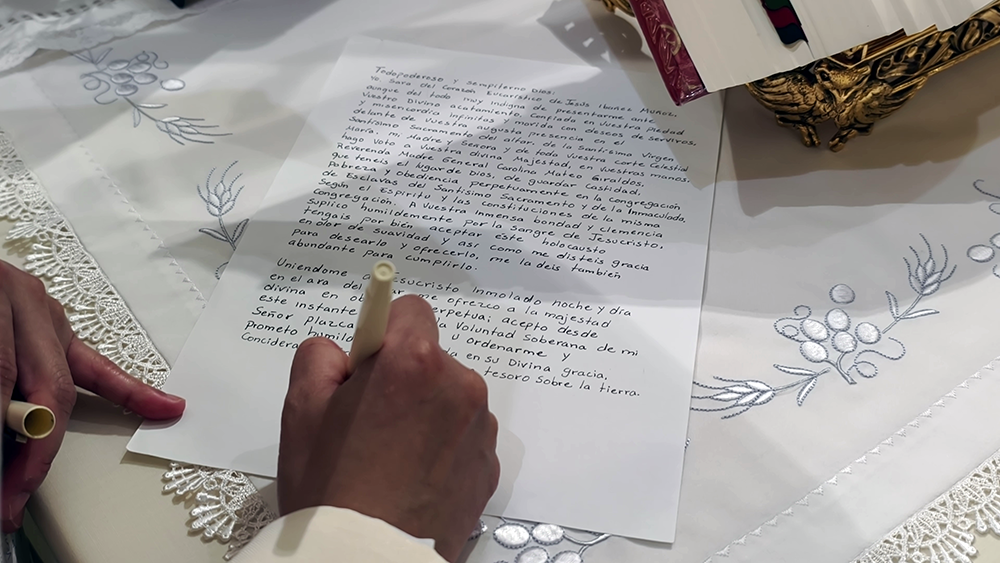 Todopoderoso y sempiterno Dios,
Yo Sara del Corazón Eucarístico de Jesús Ibañez Muñoz,
aunque del todo muy indigna de presentarme ante
Vuestro Divino acatamiento. Confiada en vuestra Piedad
y misericordia infinitas y movida con deseos de serviros.
delante de vuestra augusta presencia en el
Santísimo Sacramento de y de la Santísima Virgen
María, mi Madre y Señora y de toda Vuestra corte Celestial
hago voto a vuestra divina Majestad en vuestras manos,
Reverenda Madre General Carolina Mateo Giraldos,
que teneis el lugar de Dios, de guardar Castidad,
Pobreza y obediencia perpetuamente en la congregación
de Esclavas del Santísimo Sacramento y de la Inmaculada,
Según el Espíritu y las constituciones de la misma
congregación. A Vuestra inmensa bondad y clemencia
Suplico humildemente por la Sangre de Jesucristo,
tengais por bien aceptar este holocausto
en olor de suavidad y así como me disteis gracia
para desearlo y ofrecerlo, me la deis también
abundante para cumplirlo.
Uniendome a Jesucristo Inmolado noche y día
en el ara del me ofrezco a la majestad
divina en perpetua; acepto desde
este instante la Voluntad Soberana de mi
Señor plazca u ordenarme y
prometo en su Divina gracia,
tesoro sobre la tierra.